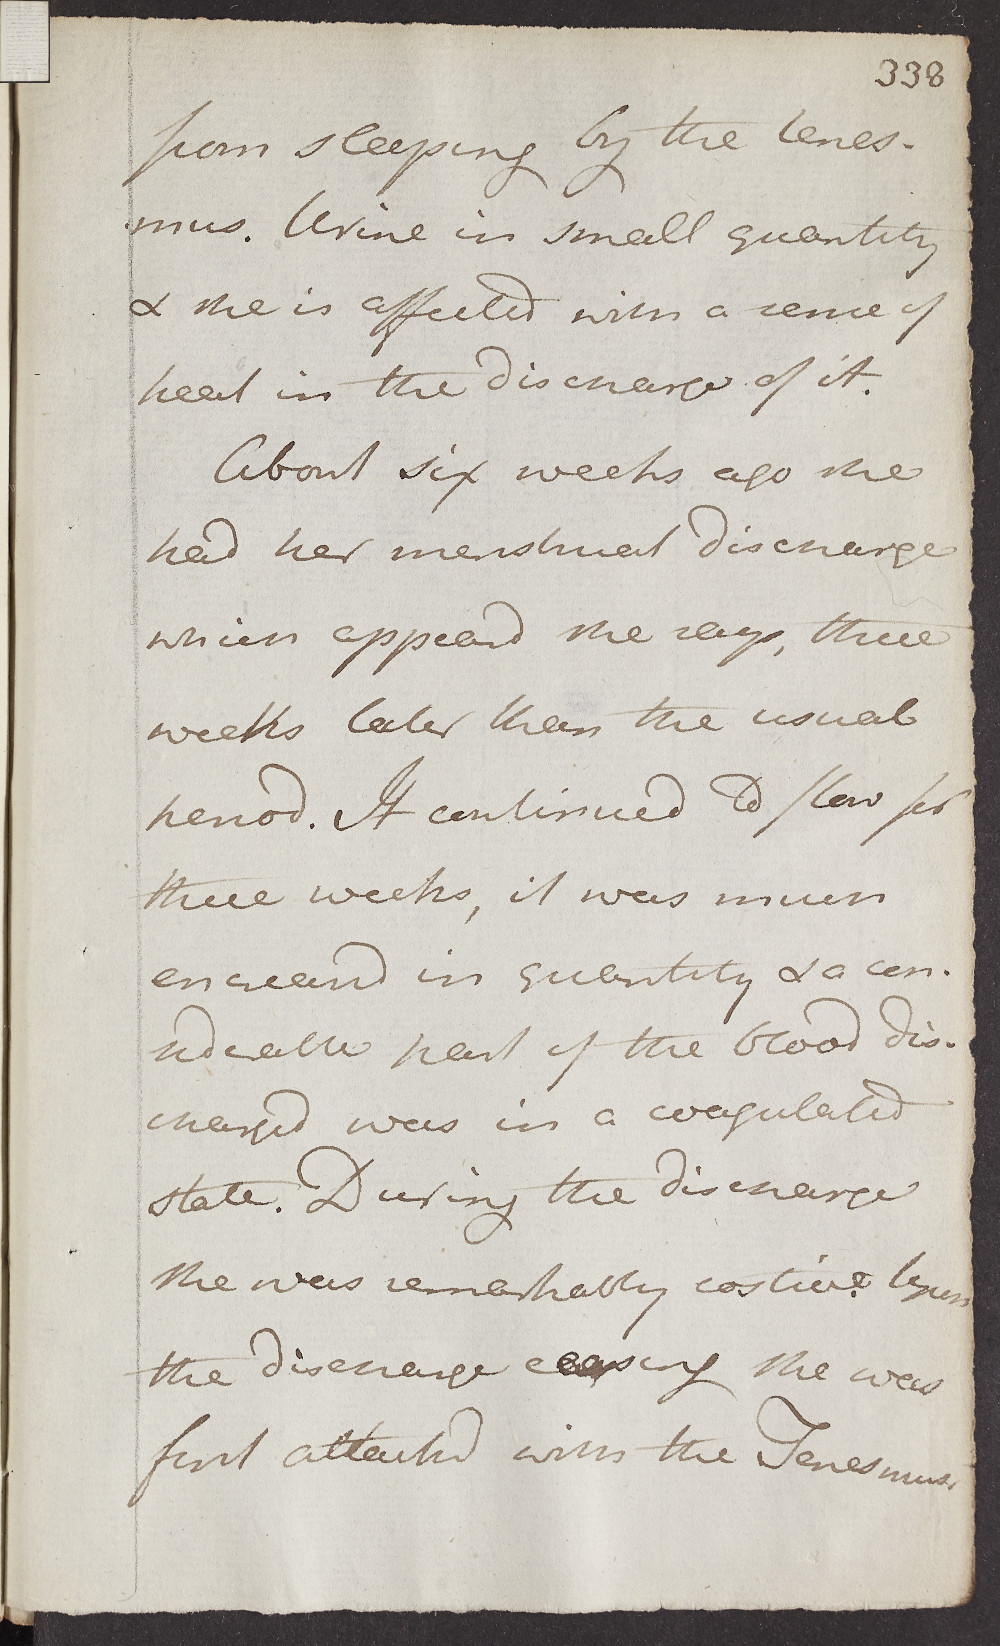 338
from sleeping by the tenes-
mus. Urine in small quantity
& she is affected with a sense of
heat in the discharge of it.
About six weeks ago she
had her menstrual discharge
which appeard she says, three
weeks later than the usual
period. It continued to flow for
three weeks, it was much
encreased in quantity & a con-
siderable part of the blood dis-
charged was in a coagulated
state. During the discharge
she was remarkably costive. Upon
the discharge ceasing she was
first attacked with the Tenesmus.